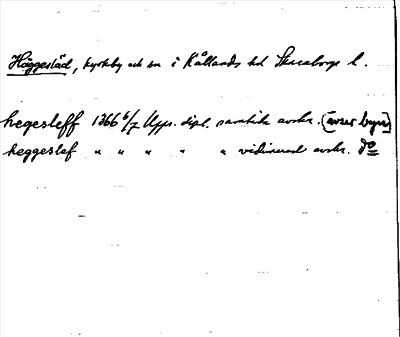 Häggesläd, kyrkby och sn i Kållands hd Skaraborgs l.
hegesleff 1366 6/7 Upps. dipl. samtida avskr. [avser byn]
heggeslef " " " " " vidimerad avskr. do